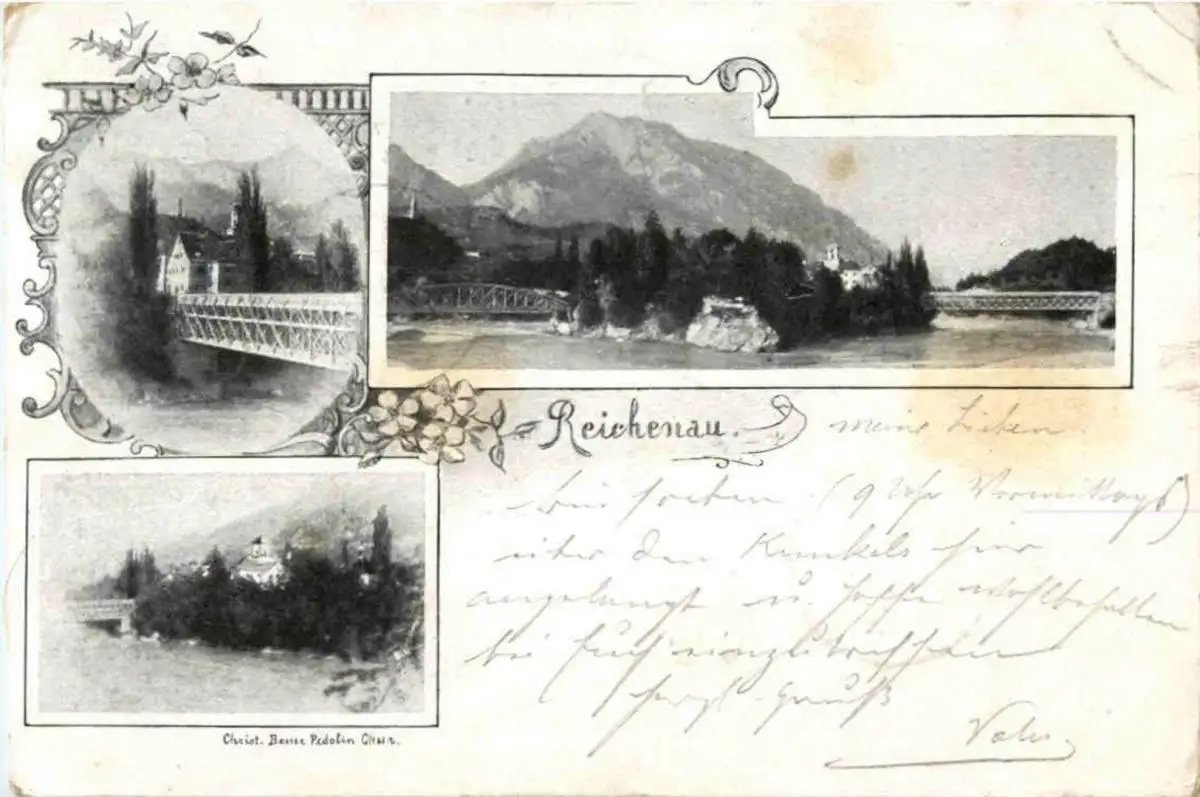 Reichenau.
meine Lieben.
soeben (9 Uhr Vormittags)
über den Kunkels hier
angelangt u. hoffe wohlbehalten
bei Euch einzutreffen
herzl. Gruß
Vater.
Christ. Bener Pedolin Chur.